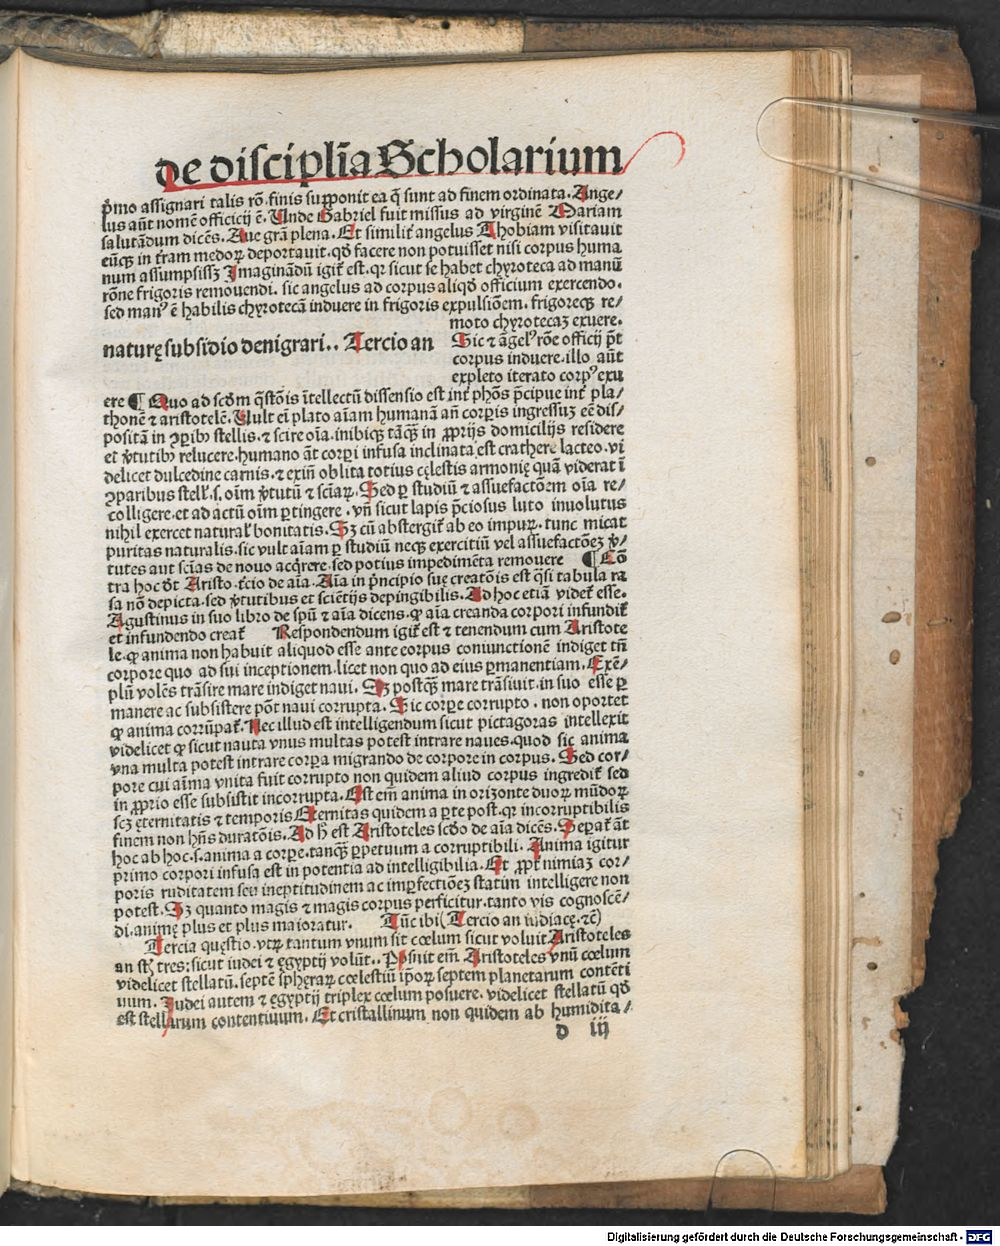 de disciplīa Scholarium
p̄mo assignari talis rō. finis supponit ea q̄ sunt ad finem ordinata. Ange/
lus aūt nomē officicij ē. Unde Gabriel fuit missus ad virginē Mariam
salutādum dicēs. Aue grā plena. Et similiṫ angelus Thobiam visitauit
eūqꝫ in ṫram medoꝝ deportauit. qđ facere non potuisset nisi corpus huma
num assumpsissꝫ Imaginādū igiť est. qꝛ sicut se habet chyroteca ad manū
rōne frigoris remouendi. sic angelus ad corpus aliqđ officium exercendo.
sed manꝰ ē habilis chyrotecā induere in frigoris expulsiōem. frigorecꝫ re/
moto chyrotecaꝫ exuere.
naturę subsidio denigrari.. Tercio an
Sic ⁊ āgelꝰ rōe officij p̄t
corpus induere. illo aūt
expleto iterato corpꝰ exu
ere ¶ Quo ad scđm q̄stōis ītellectū dissensio est inṫ phōs p̄cipue inṫ pla/
thonē ⁊ aristotelē. Uult eī plato aīam humanā añ corpis ingressuꝫ eē dis/
positā in ꝯparibꝰ stellis. ⁊ scire oīa. inibiqꝫ tāqꝫ in ꝓprijs domicilijs residere
et v̓tutibꝰ relucere. humano āt corpi infusa inclinata est crathere lacteo. vi
delicet dulcedine carnis. ⁊ exiñ oblita totius cęlestis armonię quā viderat ī
ꝯparibus stell̓. s. oīm v̓tutū ⁊ sciaꝝ. Sed ꝑ studiū ⁊ assuefactōem oīa re/
colligere. et ad actū oīm ꝑtingere. vñ sicut lapis p̄ciosus luto inuolutus
nihil exercet natural̓ bonitatis. Sꝫ cū abstergiť ab eo impuꝝ. tunc micat
puritas naturalis. sic vult aīam ꝑ studiū necꝫ exercitiū vel assuefactōeꝫ v̓/
tutes aut sciās de nouo acq̄rere. sed potius impedimēta remouere ¶ Cō
tra hoc dt̄ Aristo. ťcio de aīa. Aīa in p̄ncipio suę creatōis est q̄si tabula ra
sa nō depicta. sed v̓tutibus et scientijs depingibilis. Ad hoc etiā videť esse.
Agustinus in suo libro de spū ⁊ aīa dicens. ꝙ aīa creanda corpori infundiť
et infundendo creať Respondendum igiť est ⁊ tenendum cum Aristote
le. ꝙ anima non habuit aliquod esse ante corpus coniunctionē indiget tñ
corpore quo ad sui inceptionem. licet non quo ad eius ꝑmanentiam. Exē/
plū volēs trāsire mare indiget naui. Sꝫ postqꝫ mare trāsiuit. in suo esse ꝑ
manere ac subsistere pōt naui corrupta. Sic corpe corrupto. non oportet
ꝙ anima corrūpať. Nec illud est intelligendum sicut pictagoras intellexit
videlicet ꝙ sicut nauta vnus multas potest intrare naues. quod sic anima
vna multa potest intrare corpa migrando de corpore in corpus. Sed cor/
pore cui aīma vnita fuit corrupto non quidem aliud corpus ingrediť sed
in ꝓprio esse subsistit incorrupta. Est em̄ anima in orizonte duoꝝ mūdoꝝ
scꝫ ęternitatis ⁊ temporis Eternitas quidem a ꝑte post. qꝛ incorruptibilis
finem non hñs duratōis. Ad h̄ est Aristoteles scđo de aīa dicēs. Sepať āt
hoc ab hoc. s. anima a corpe. tanqꝫ ꝑpetuum a corruptibili. Anima igitur
primo corpori infusa est in potentia ad intelligibilia. Et ꝓpt̓ nimiaꝫ cor/
poris ruditatem seu ineptitudinem ac imꝑfectiōeꝫ statim intelligere non
potest. Sꝫ quanto magis ⁊ magis corpus perficitur. tanto vis cognoscē/
di. animę plus et plus maioratur. Tūc ibi (Tercio an iudiacę. ⁊c̄)
Tercia quęstio. vtꝝ tantum vnum sit cœlum sicut voluit Aristoteles
an sīt tres: sicut iudei ⁊ ęgyptij volūt.. Posuit em̄ Aristoteles vnū cœlum
videlicet stellatū. septē sphęraꝝ cœlestiū ip̄oꝝ septem planetarum contēti
uum. Iudei autem ⁊ ęgyptij triplex cœlum posuere. videlicet stellatū qđ
est stellarum contentiuum. Et cristallinum non quidem ab humidita/
d iij
Digitalisierung gefördert durch die Deutsche Forschungsgemeinschaft - DFG